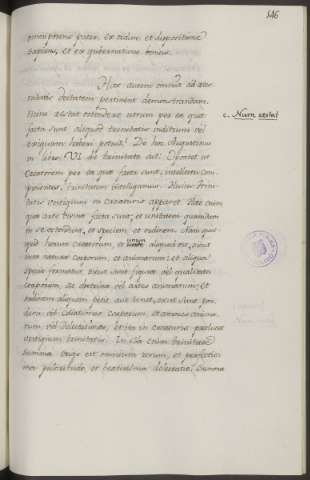 146
omnipotens pater, ex ordine et dispositione
sapiens, et ex gubernatione bonus.
Hæc autem omnia ad æter
nitatis deitatem pertinent demonstrandam.
Nunc restat ostendere utrum per ea quæ
c. Nunc restat
facta sunt aliquod trinitatis inditium vel
exiguum haberi potuit. De hoc Augustinus
in libro VI de trinitate ait: Oportet ut
Creatorem per ea quæ facta sunt, intellectu con
spicientes, trinitatem intelligamus. Huius trini
tatis vestigium in creaturis apparet. Hæc enim
quæ arte divina facta sunt, et unitatem quamdam
in se ostendunt, et speciem, et ordinem. Nam quo
quid horum creatorum, et unum aliquid est, sicut
sunt naturæ corporum, et animarum; et aliqua
specie formatur, sicut sunt figuræ vel qualitates
corporum, ac doctrinæ vel artes animarum; et
ordinem aliquem petit aut tenet, sicut sunt pon
dera vel collationes corporum, et amores anima
rum vel delectationes, et ita in creaturis prælucet
vestigium trinitatis. In illa enim trinitate
summa origo est omnium rerum, et perfectis
ima pulcritudo, et beatissima delectatio. Summa